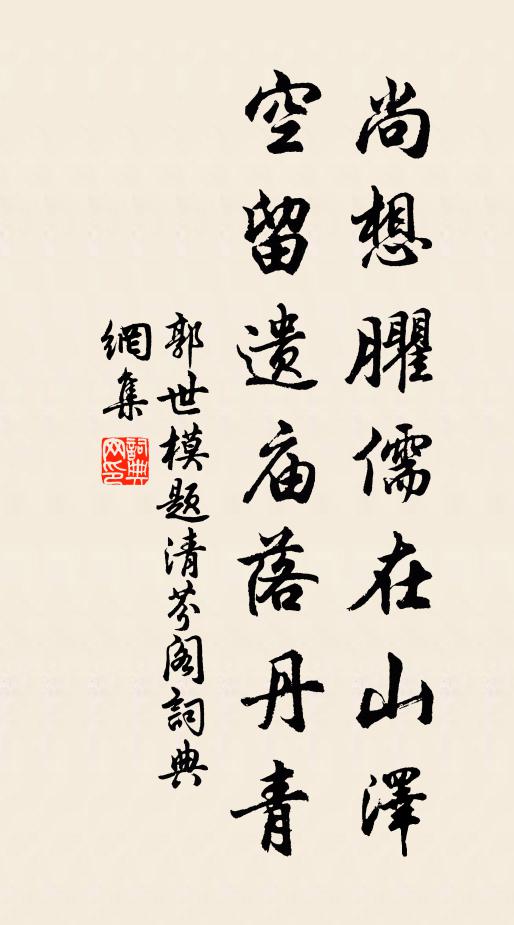 尚想臞儒在山澤
空留遗庙落丹青
郭世模题清芬阁詞典
網集
詞典網印